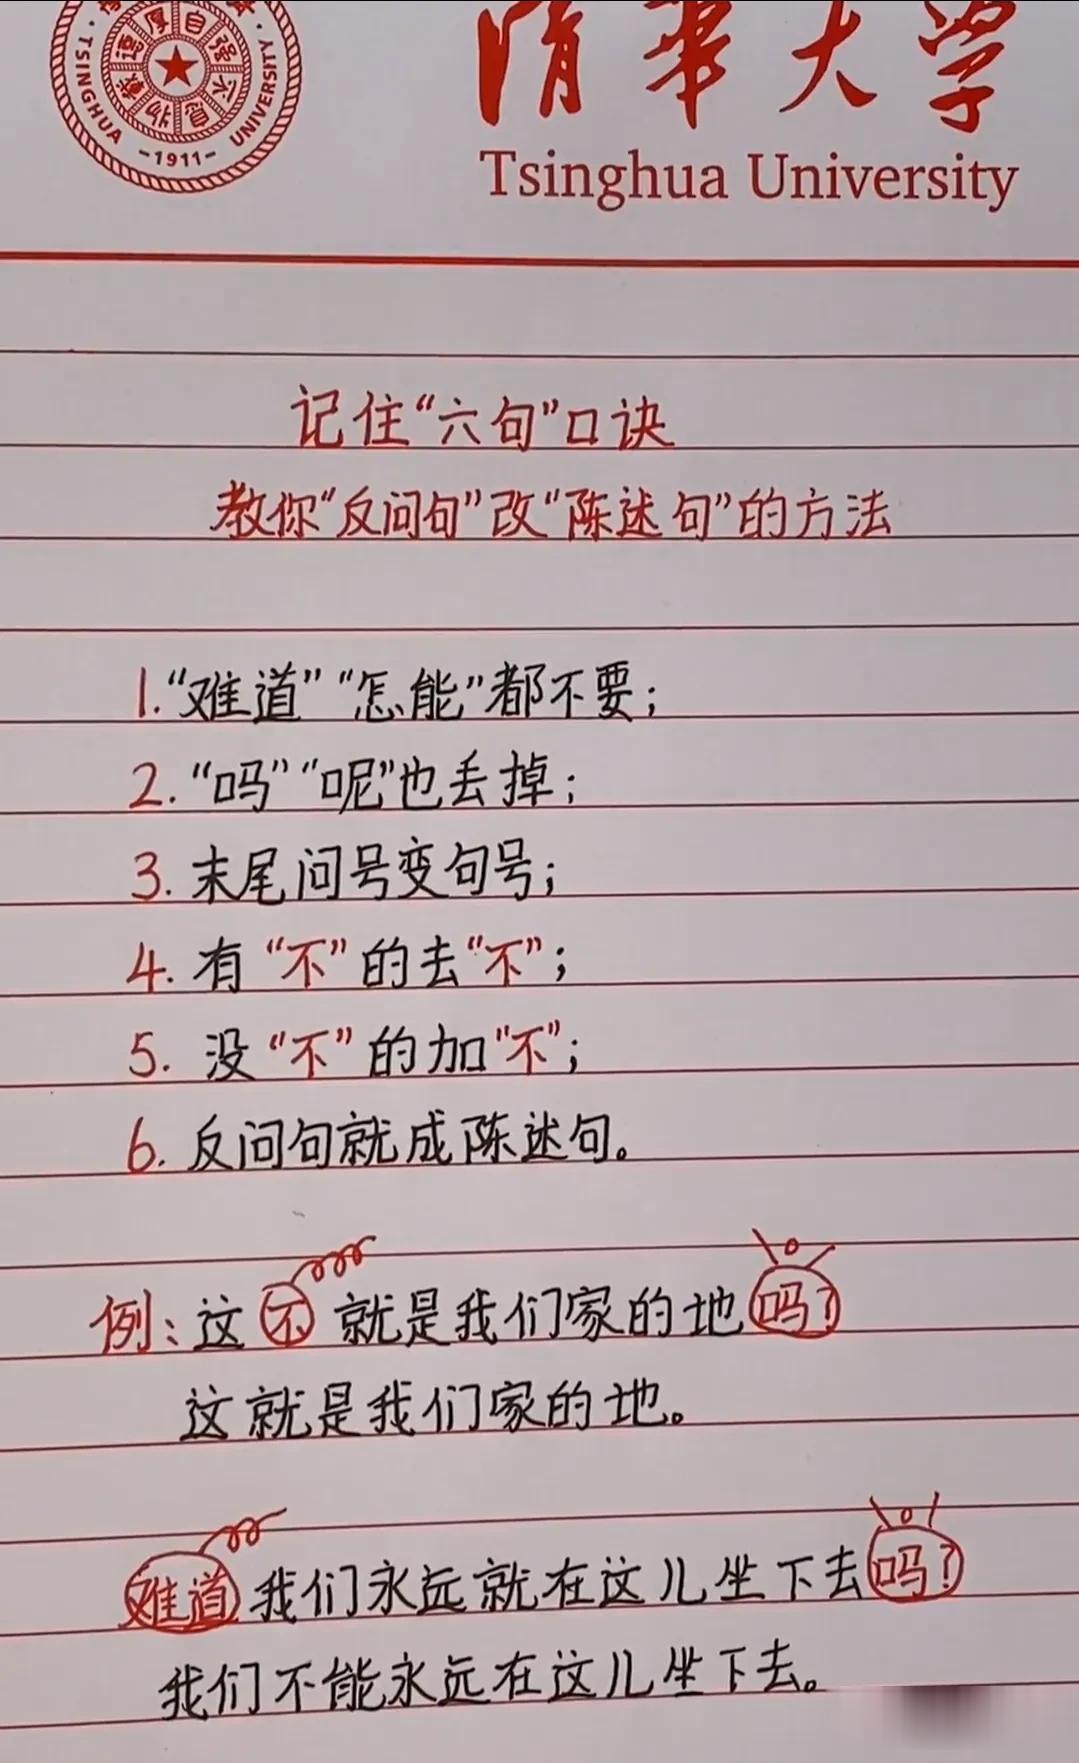 自强不息 厚德载物
TSINGHUA UNIVERSITY
-1911-
清華大学
Tsinghua University
记住“六句”口诀
教你“反问句”改“陈述句”的方法
1.“难道”“怎能”都不要;
2.“吗”“呢”也丢掉;
3.末尾问号变句号;
4.有“不”的去“不”;
5.没“不”的加“不”;
6.反问句就成陈述句。
例:这不就是我们家的地吗?
这就是我们家的地。
难道我们永远就在这儿坐下去吗?
我们不能永远在这儿坐下去。